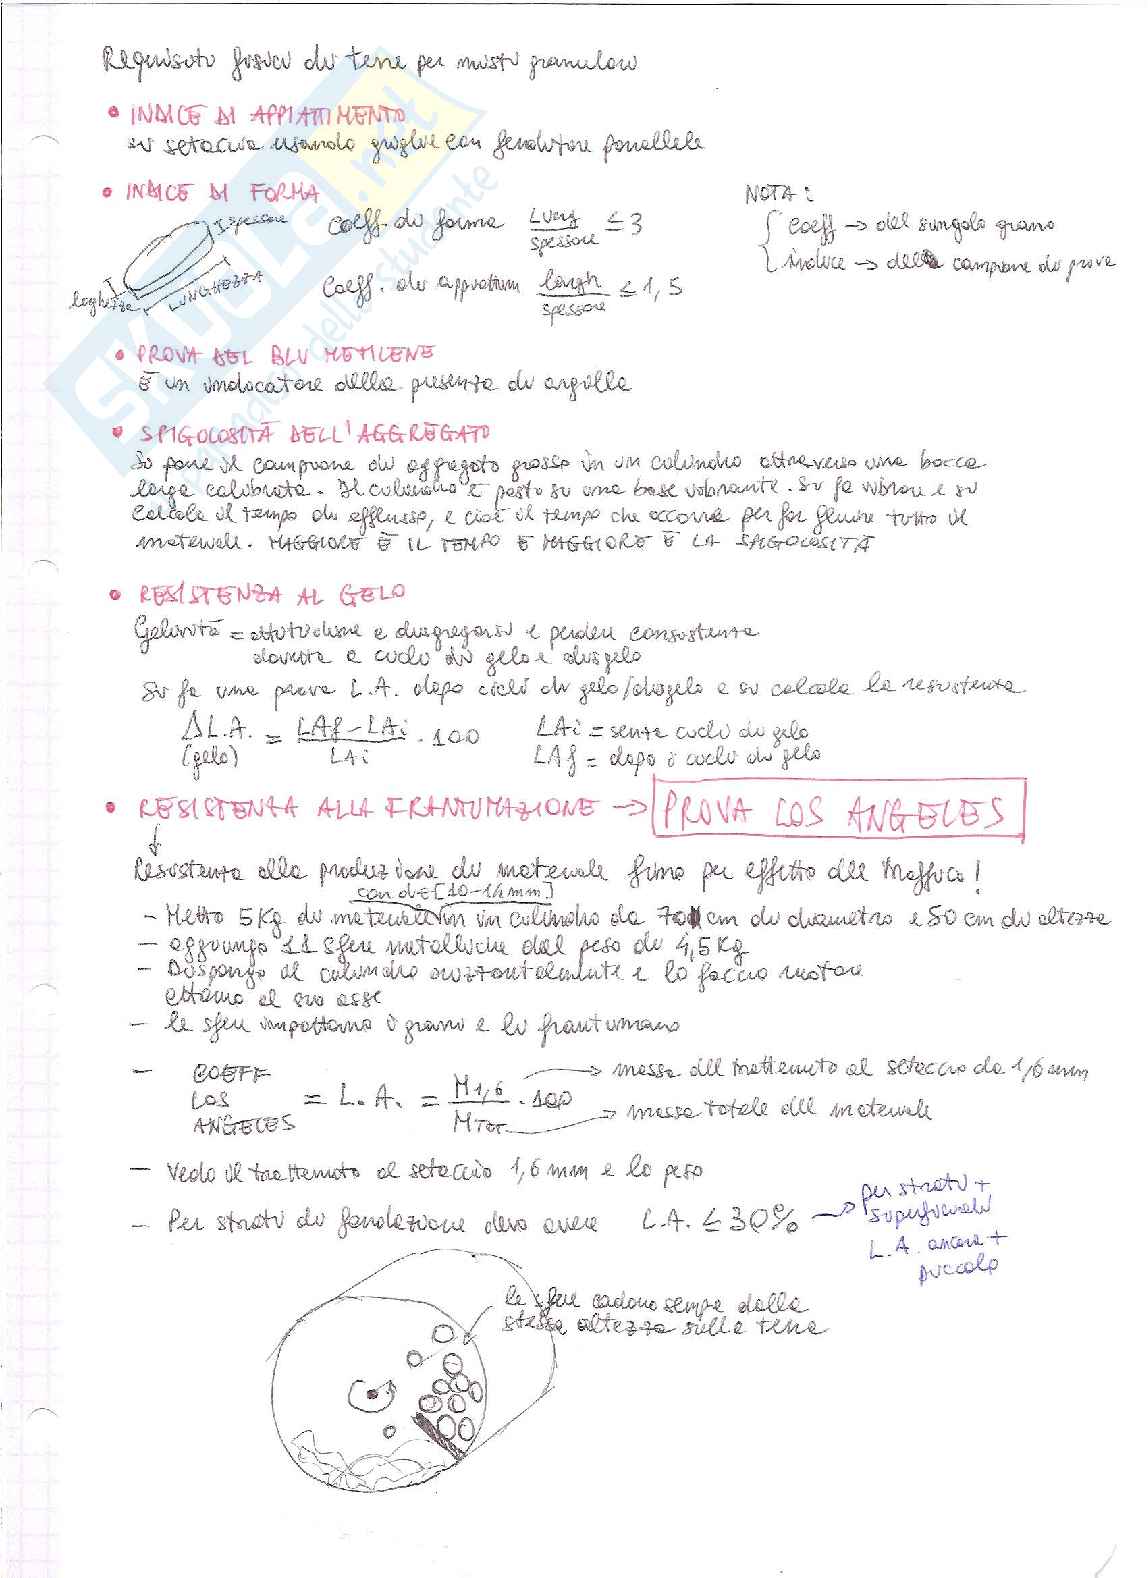 Requisiti fisici di terre per misti granulari
• INDICE DI APPIATTIMENTO
si setaccia usando griglie con fenditure parallele
• INDICE DI FORMA
spessore
larghezza
LUNGHEZZA
Coeff. di forma Lung/spessore ≤ 3
Coeff. di appiattim largh/spessore ≤ 1,5
NOTA:
{ Coeff → del singolo grano
indice → del campione di prova
• PROVA DEL BLU METILENE
È un indicatore della presenza di argilla
• SPIGOLOSITÀ DELL'AGGREGATO
Si pone il campione di aggregato grosso in un cilindro attraverso una bocca
larga calibrata. Il cilindro è posto su una base vibrante. Si fa vibrare e si
calcola il tempo di efflusso, e cioè il tempo che occorre per far fluire tutto il
materiale. MAGGIORE È IL TEMPO E MAGGIORE È LA SPIGOLOSITÀ
• RESISTENZA AL GELO
Gelività = attitudine a disgregarsi e perdere consistenza
dovuta a cicli di gelo e disgelo
Si fa una prova L.A. dopo cicli di gelo/disgelo e si calcola la resistenza
ΔL.A. (gelo) = LAf - LAi / LAi · 100
LAi = senza cicli di gelo
LAf = dopo i cicli di gelo
• RESISTENZA ALLA FRANTUMAZIONE → PROVA LOS ANGELES
↓
Resistenza alla produzione di materiale fino per effetto del traffico!
con d∈[10-14mm]
- Metto 5Kg di materiale in un cilindro da 70 cm di diametro e 50 cm di altezza
- aggiungo 11 sfere metalliche dal peso di 4,5 Kg
- Dispongo il cilindro orizzontalmente e lo faccio ruotare
attorno al suo asse
- le sfere impattano i grani e li frantumano
- COEFF LOS ANGELES = L.A. = M1,6/MTOT · 100
→ massa del trattenuto al setaccio da 1,6 mm
→ massa totale del materiale
- Vedo il trattenuto al setaccio 1,6 mm e lo peso
- Per strati di fondazione devo avere L.A. ≤ 30% → per strati +
superficiali
L.A. ancora +
piccolo
le sfere cadono sempre dalla
stessa altezza sulla terra
SKUOLA.net